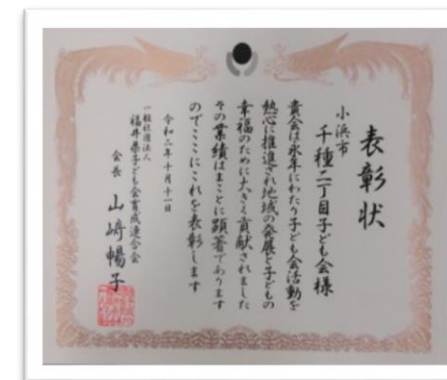 表彰状
小浜市
千種二丁目子ども会様
貴会は永年にわたり子ども会活動を
熱心に推進され地域の発展と子どもの
幸福のために大きく貢献されました
その業績はまことに顕著であります
のでここにこれを表彰します
令和二年十月十一日
一般社団法人
福井県子ども会育成連合会
会長 山﨑暢子